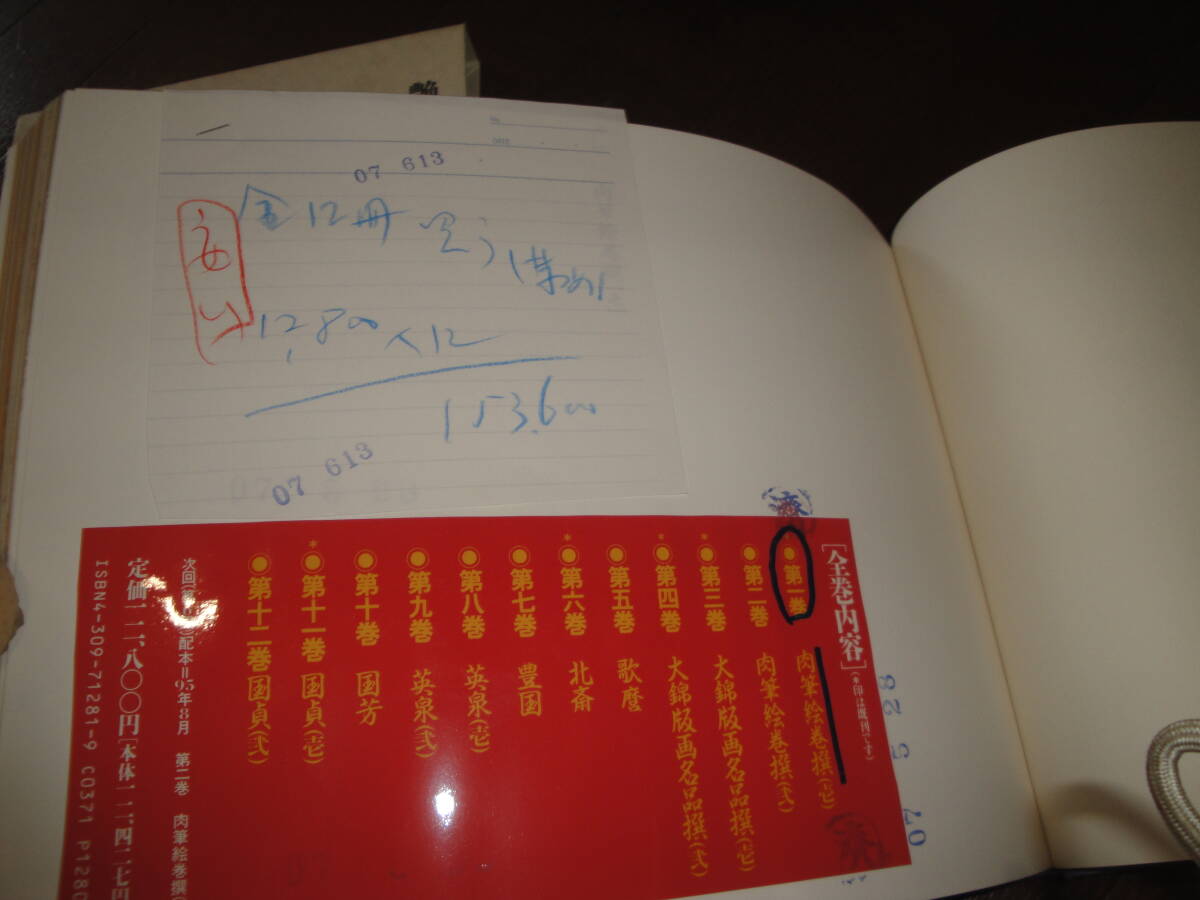 艶
No.
DATE
07 613
全12冊 買う
安い
12,800×12
153,600
07 613
[全巻内容](*印は既刊です)
*●第一巻 肉筆絵巻撰(壱)
●第二巻 肉筆絵巻撰(弐)
*●第三巻 大錦版画名品撰(壱)
*●第四巻 大錦版画名品撰(弐)
●第五巻 歌麿
*●第六巻 北斎
●第七巻 豊国
●第八巻 英泉(壱)
●第九巻 英泉(弐)
●第十巻 国芳
*●第十一巻 国貞(壱)
●第十二巻 国貞(弐)
配本=95年8月 第二巻 肉筆絵巻撰
定価一二、八〇〇円[本体一二、四二七円
ISBN4-309-71281-9 C0371 P1280
07 5 28